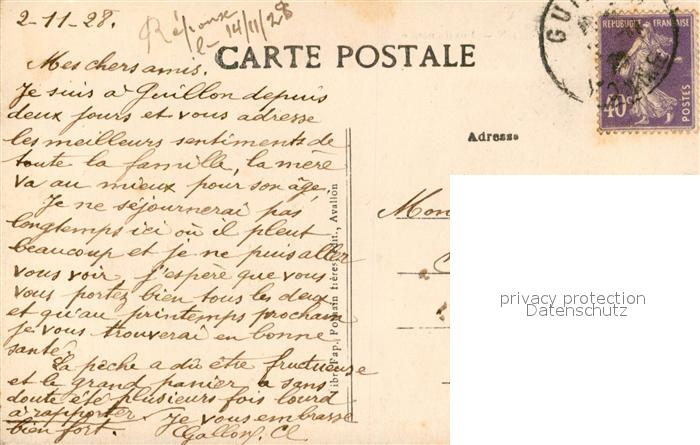 2-11-28.
Réponse
le 14/11/28
CARTE POSTALE
GUI
REPUBLIQUE FRANÇAISE
40c
POSTES
Adresse
Mes chers amis.
Je suis à Guillon depuis
deux jours et vous adresse
les meilleurs sentiments de
toute la famille, la mère
va au mieux pour son âge,
Je ne séjournerai pas
longtemps ici où il pleut
beaucoup et je ne puis aller
vous voir. j'espère que vous
vous portez bien tous les deux
et qu'au printemps prochain
je vous trouverai en bonne
santé.
La pêche a dû être fructueuse
et le grand panier a sans
doute été plusieurs fois lourd
à rapporter. Je vous embrasse
bien fort.
Libr. Pap. frères, édit., Avallon
Mon
privacy protection
Datenschutz